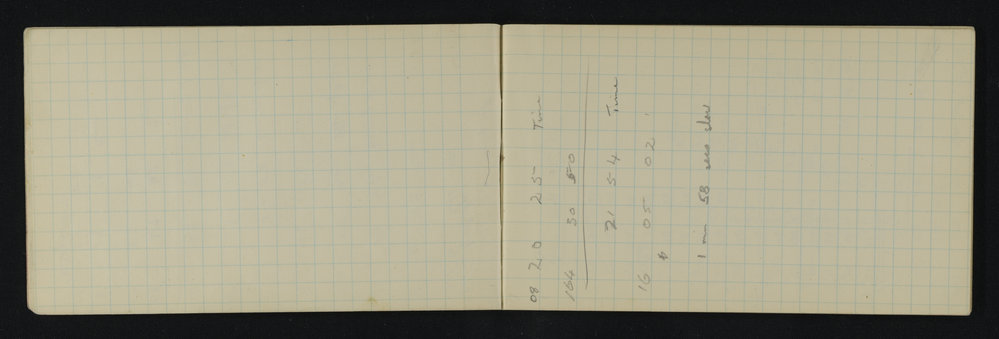 08 20 25 Time
164 30 50
21 54 Time
16 05 02
1 min 58 secs slow